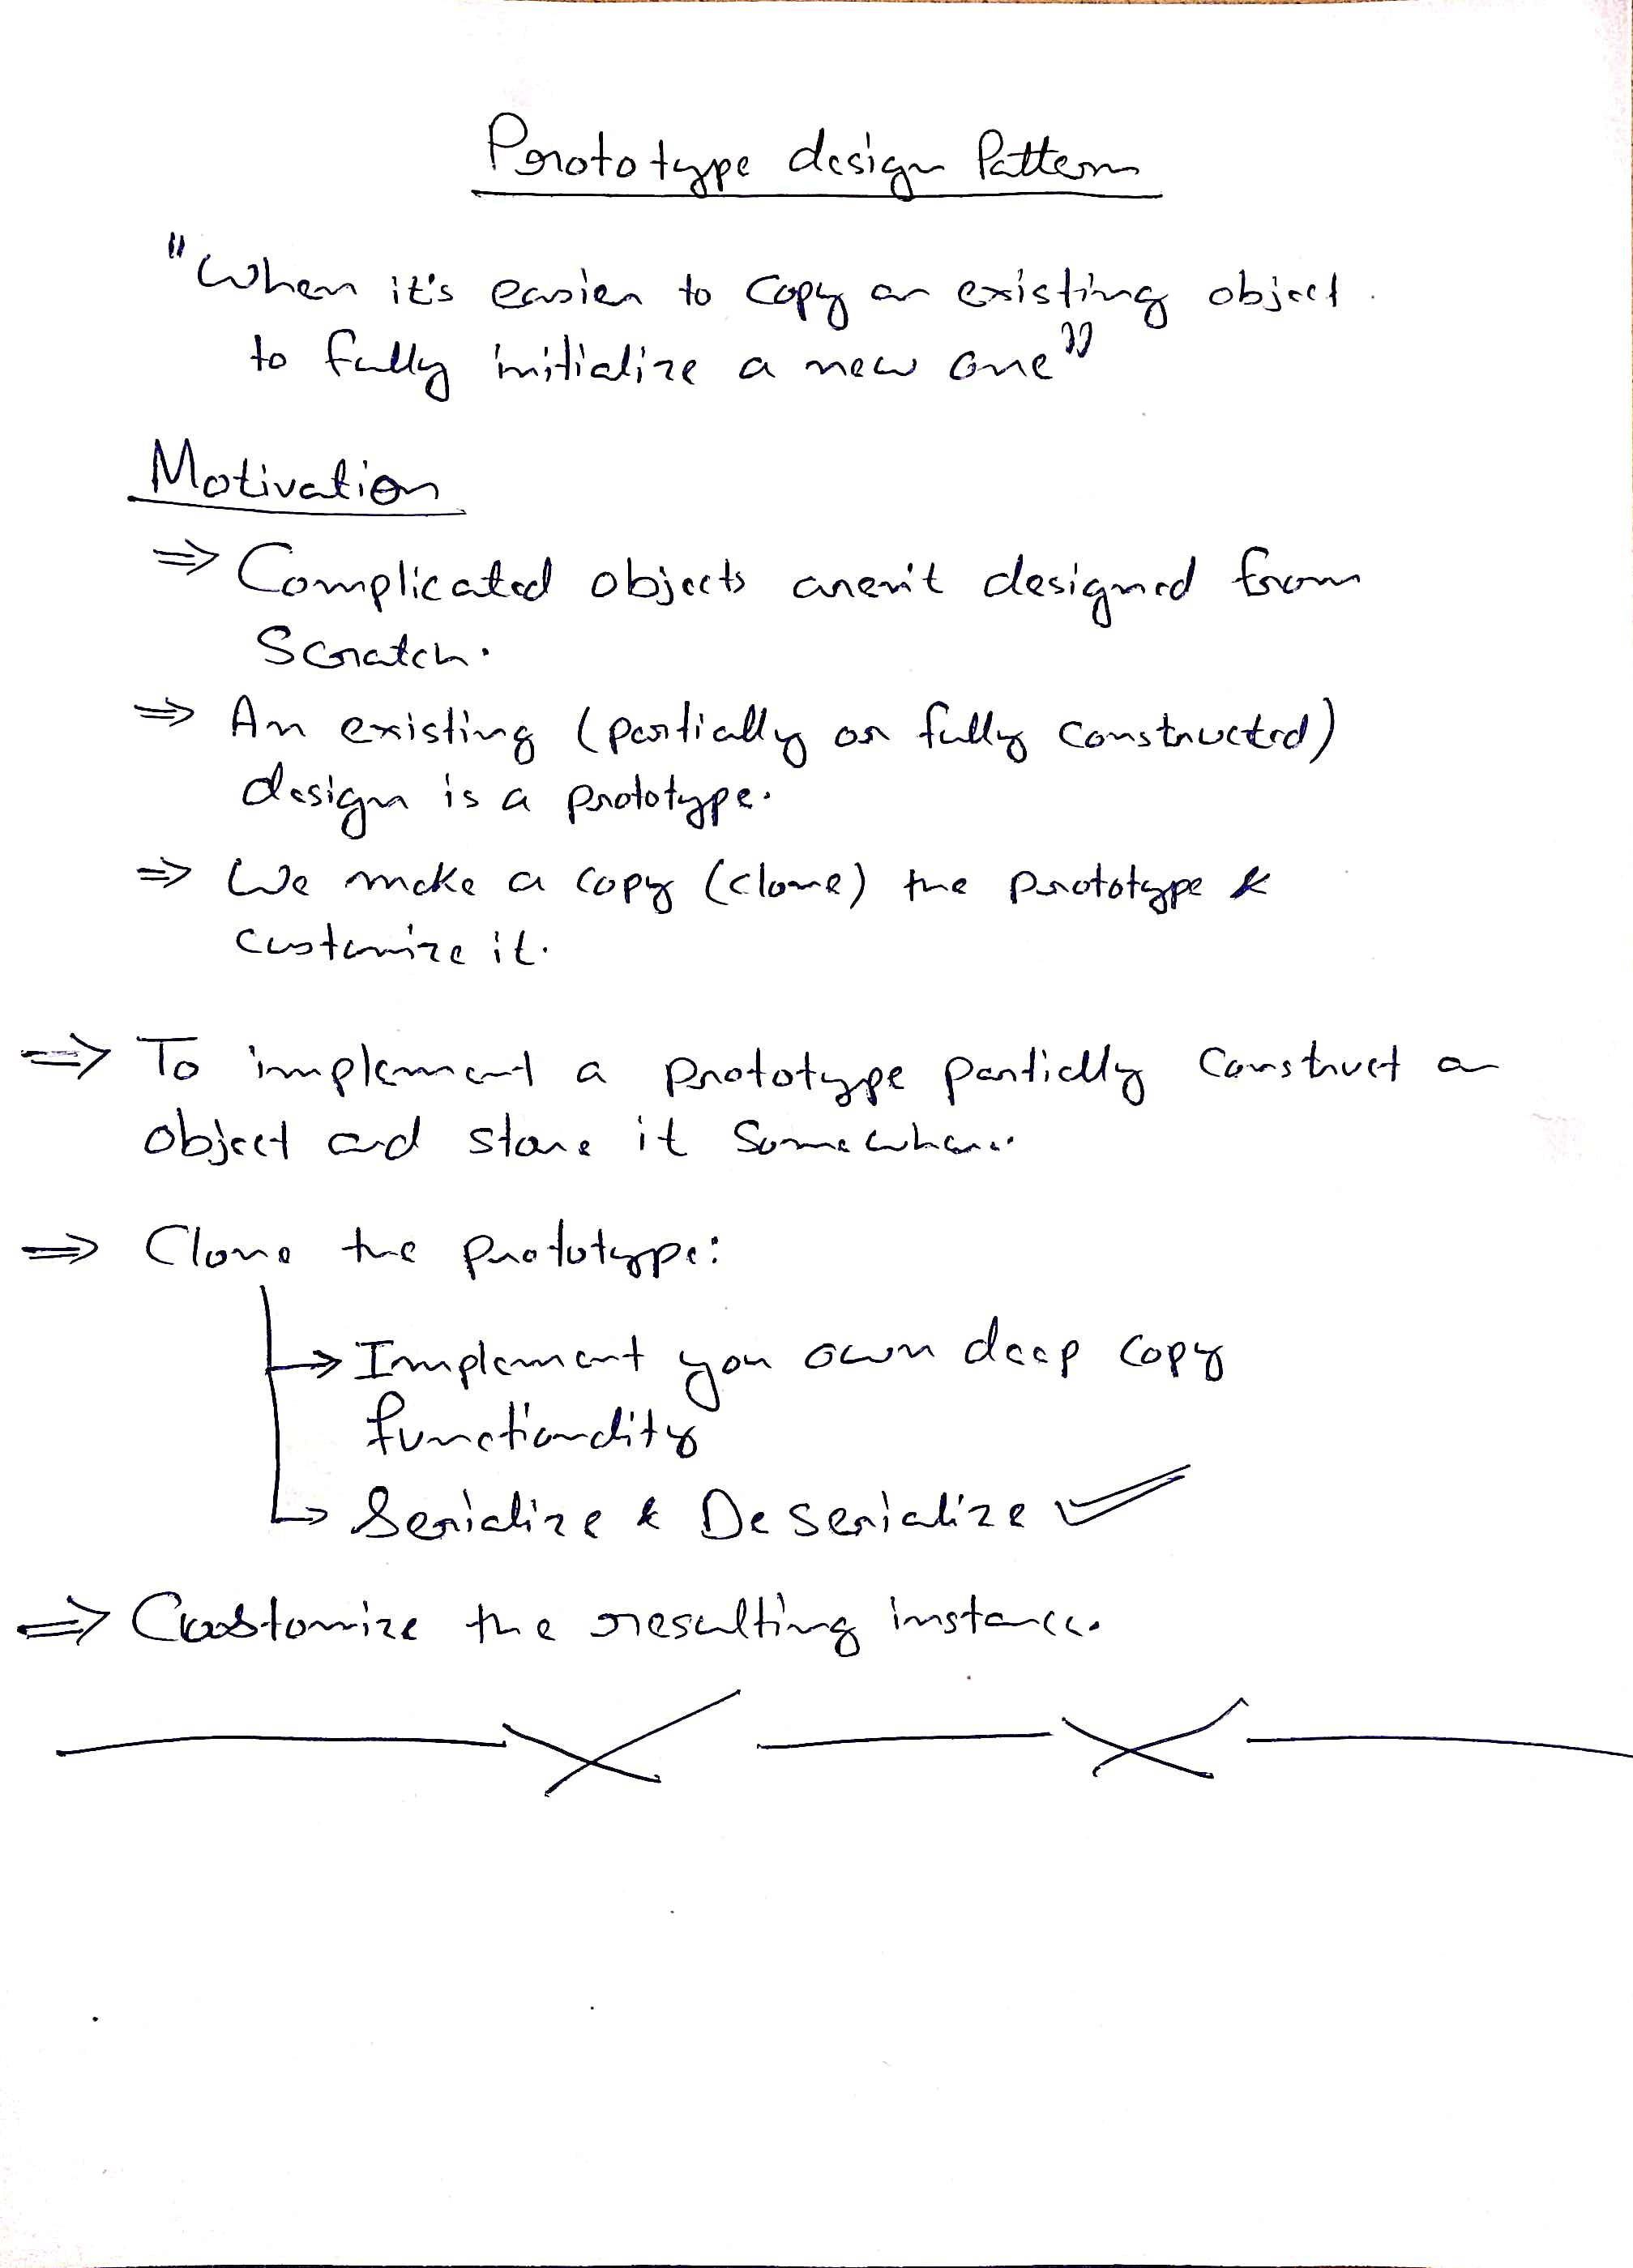 Prototype design Pattern
"When it's easier to copy an existing object
to fully initialize a new one"
Motivation
⇒ Complicated objects aren't designed from
Scratch.
⇒ An existing (partially or fully constructed)
design is a prototype.
⇒ We make a copy (clone) the prototype &
customize it.
⇒ To implement a prototype partially construct an
object and store it somewhere.
⇒ Clone the prototype:
→ Implement you own deep copy
functionality
→ Serialize & Deserialize ✓
⇒ Customize the resulting instance.